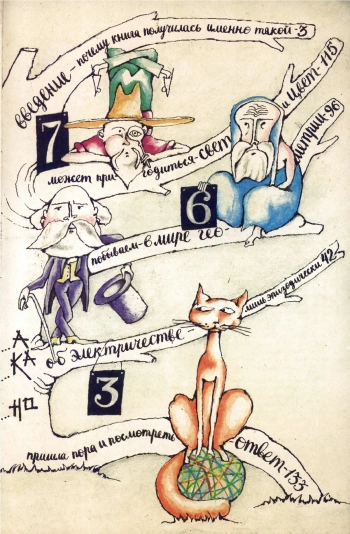 введение – почему книга получилась именно такой – 3
7
может при годиться – свет и цвет – 115
6
побываем – в мире гео метрии 96
А
КА
об электричестве – лишь эпизодически 42
НО
3
пришла пора и посмотреть ответ – 133